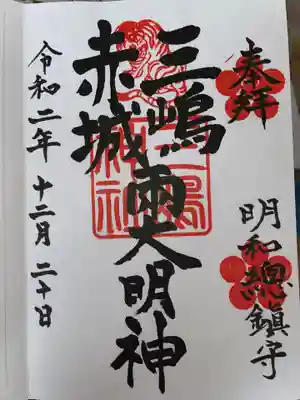 奉拝
明和總鎮守
三嶋
赤城
兩大明神
令和二年 十二月 二十日